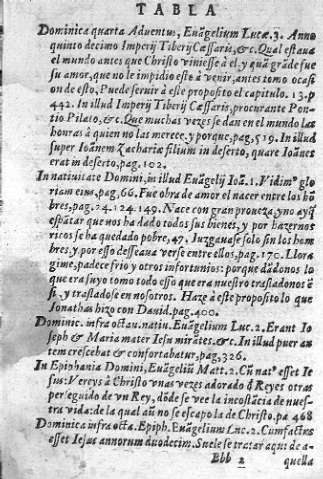 TABLA
Dominica quarta Aduentus, Euāgelium Lucæ.3. Anno
quinto decimo Imperij Tiberij Cæsaris, &c. Qual estaua
el mundo antes que Christo viniesse à el, y quā grāde fue
su amor, que no le impidio esto à venir, antes tomo ocasi
on de esto. Puede seruir à este proposito el capitulo. 13. p
442. In illud Imperij Tiberij Cæsaris, procurante Pon-
tio Pilato, &c. Que muchas vezes se dan en el mundo las
honras à quien no las merece, y porque, pag, 519. In illud
super Ioānem Zachariæ filium in deserto, quare Ioānes
erat in deserto, pag. 102.
In natiuitate Domini, in illud Euāgelij Ioā.1. Vidimꝰ glo
riam eius, pag, 66. Fue obra de amor el nacer entre los hō
bres, pag. 24.124.149. Nace con gran proueza, y no ay
espātar que nos ha dado todos sus bienes, y por hazernos
ricos se ha quedado pobre, 47, Iuzgauase solo sin los hom
bres, y por esso desseaua verse entre ellos, pag. 170. Llora
gime, padece frio y otros infortunios: porque dādonos lo
que era suyo tomo todo esso que era nuestro trasladonos ē
si, y trasladose en nosotros. Haze à este proposito lo que
Ionathas hizo con Dauid. pag. 400.
Dominic. infra octau. natiu. Euāgelium Luc. 2. Erant Io
seph & Maria mater Iesu mirātes, &c. In illud puer au
tem crescebat & confortabatur, pag, 326.
In Epiphania Domini, Euāgeliū Matt. 2. Cū natꝰ esset Ie
sus: Vereys à Christo vnas vezes adorado đ Reyes otras
perseguido de vn Rey, dōde se vee la incōstācia de nues-
tra vida: de la qual aū no se escapo la de Christo. pa 468
Dominica infra octa. Epiph. Euāgelium Luc. 2. Cum factus
esset Iesus annorum duodecim. Suele se tratar aqui de a-
Bbb 2 quella